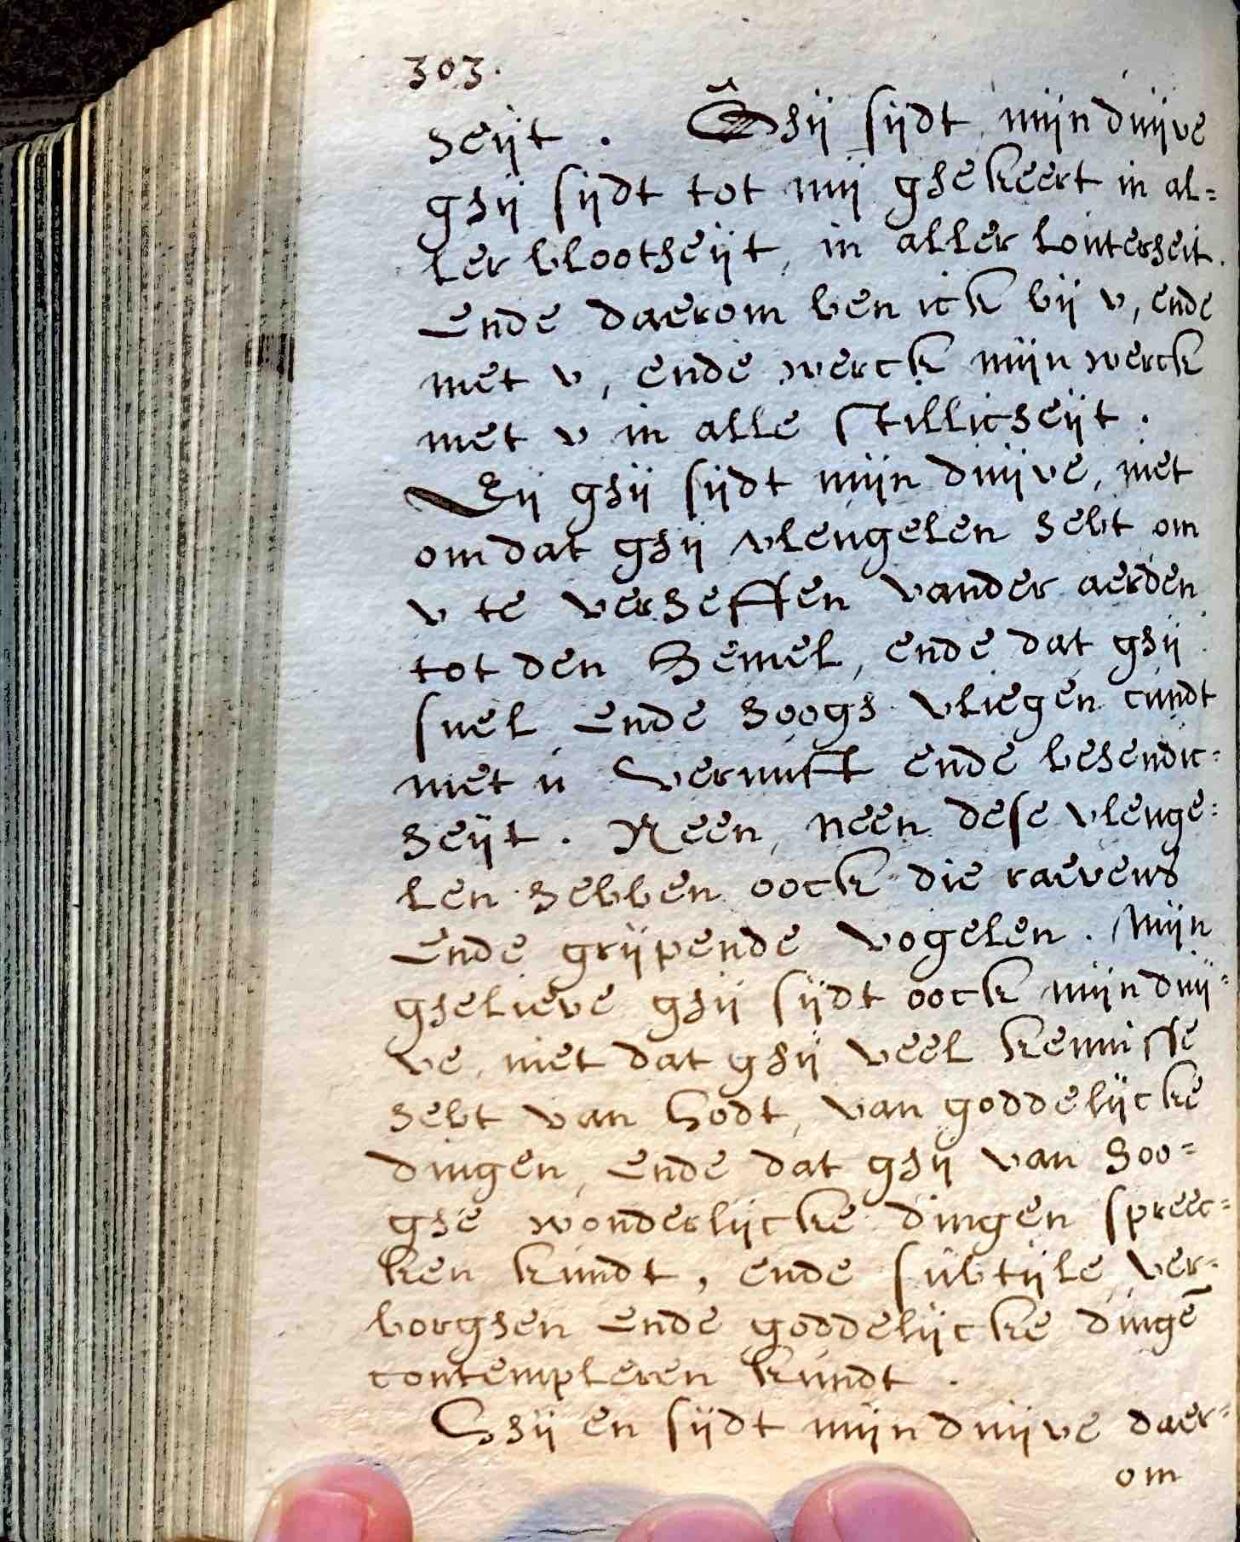 303.
heijt. Ghij sijdt mijn duijve
ghij sijdt tot mij ghekeert in al=
ler blootheijt, in aller louterheit.
Ende daerom ben ick bij v, ende
met v, ende werck mijn werck
met v in alle stillicheijt.
Eij ghij sijdt mijn duijve, niet
omdat ghij vleugelen hebt om
v te verheffen vander aerden
tot den Hemel, ende dat ghij
snel ende hoogh vliegen cundt
met u vernuft ende behendic=
heijt. Neen, neen dese vleuge=
len hebben oock die ravens
ende grijpende vogelen. Mijn
ghelieve ghij sijdt oock mijn duij=
ve, niet dat ghij veel kennisse
hebt van Godt, van goddelijcke
dingen, ende dat ghij van hoo=
ghe wonderlijcke dingen spreec=
ken kundt, ende subtijle ver=
borghen ende goddelijcke dingē
contempleren kundt.
Ghij en sijdt mijn duijve daer=
om